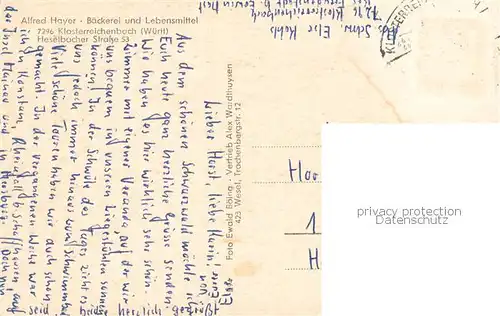 Alfred Hayer · Bäckerei und Lebensmittel
7296 Klosterreichenbach (Württ)
Heselbacher Straße 53
Abs. Schw. Else
7296 Klosterreichenbach
Foto Ewald Böing - Vertrieb Alex Wardthuysen
423 Wesel, Trachenbergstr. 12
Lieber Horst, liebe Karin!
Aus dem schönen Schwarzwald möchte ich
Euch heute ganz herzliche Grüße senden.
Wir haben es hier wirklich sehr schön.
Zimmer mit eigener Veranda, auf der wir
uns bequem in unseren Liegestühlen sonnen
können! In der Schwüle des Tages zieht es
uns jedoch immer hinaus zum Schwimmbad
Viele schöne Touren haben wir auch schon
gemacht. In der vergangenen Woche war
ich in Konstanz, Rheinfall b. Schaffhausen, auf
der Insel Mainau und in Meersburg. Doch nun
herzlich
von
Eurer
Else
Hoo
1
H
privacy protection
Datenschutz